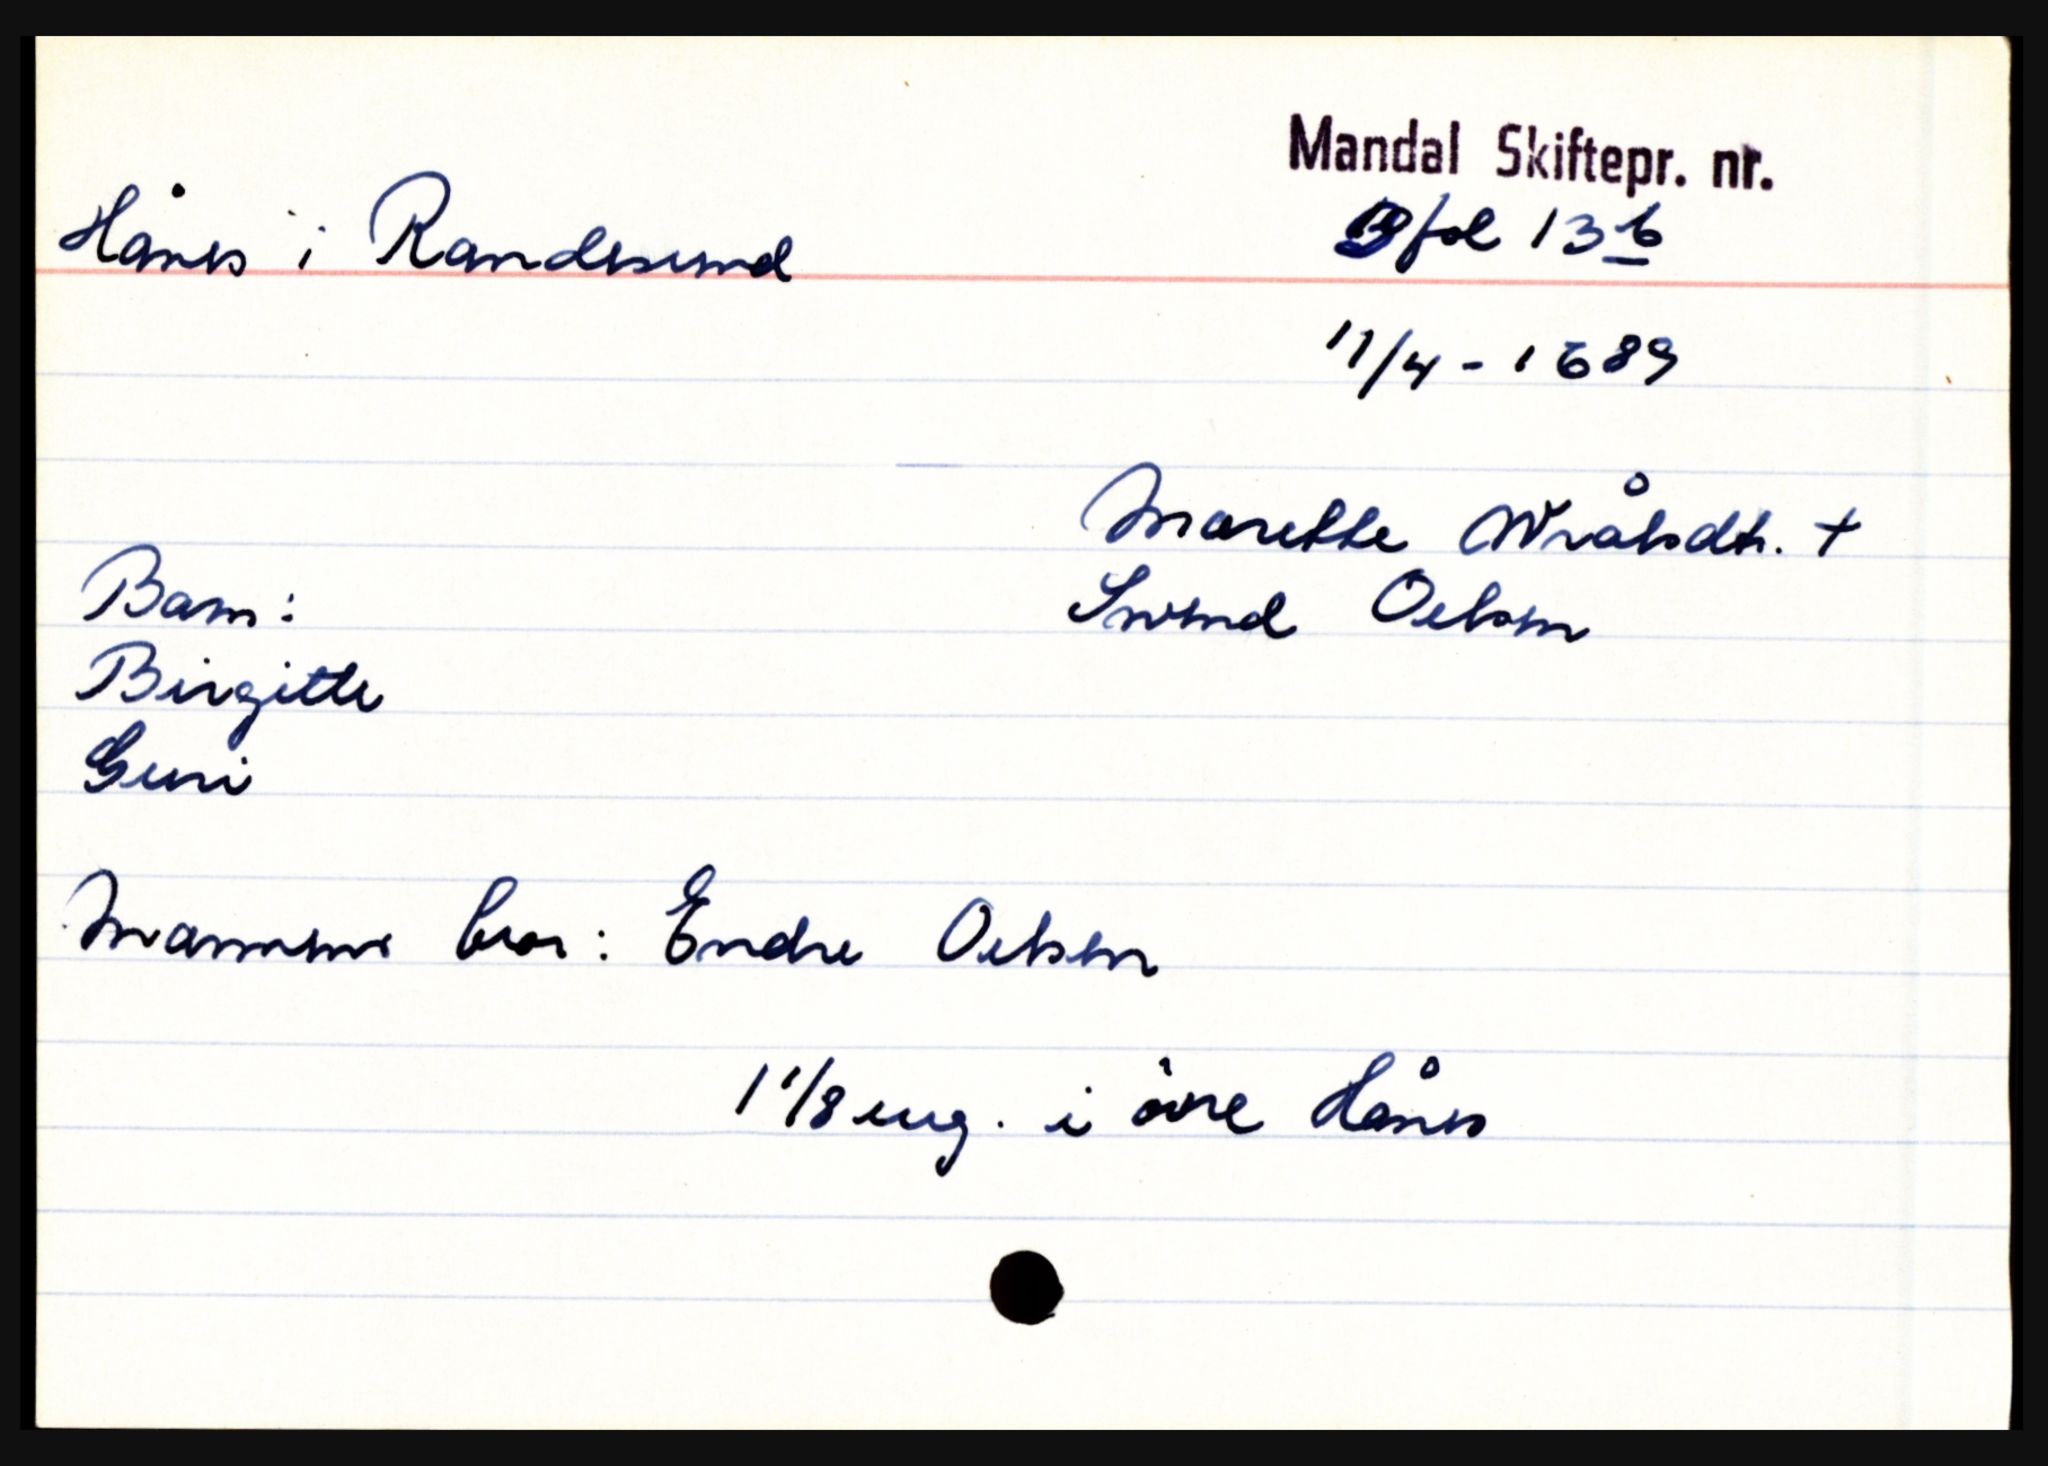 Mandal Skiftepr. nr.
Hånes i Randesund
fol 13 b
11/4 - 1689
Marethe Wråhsdtr. +
Barn:
Svend Oelsen
Birgitte
Guri
Mannens bror: Endre Oelsen
1 1/8 eng. i övre Hånes